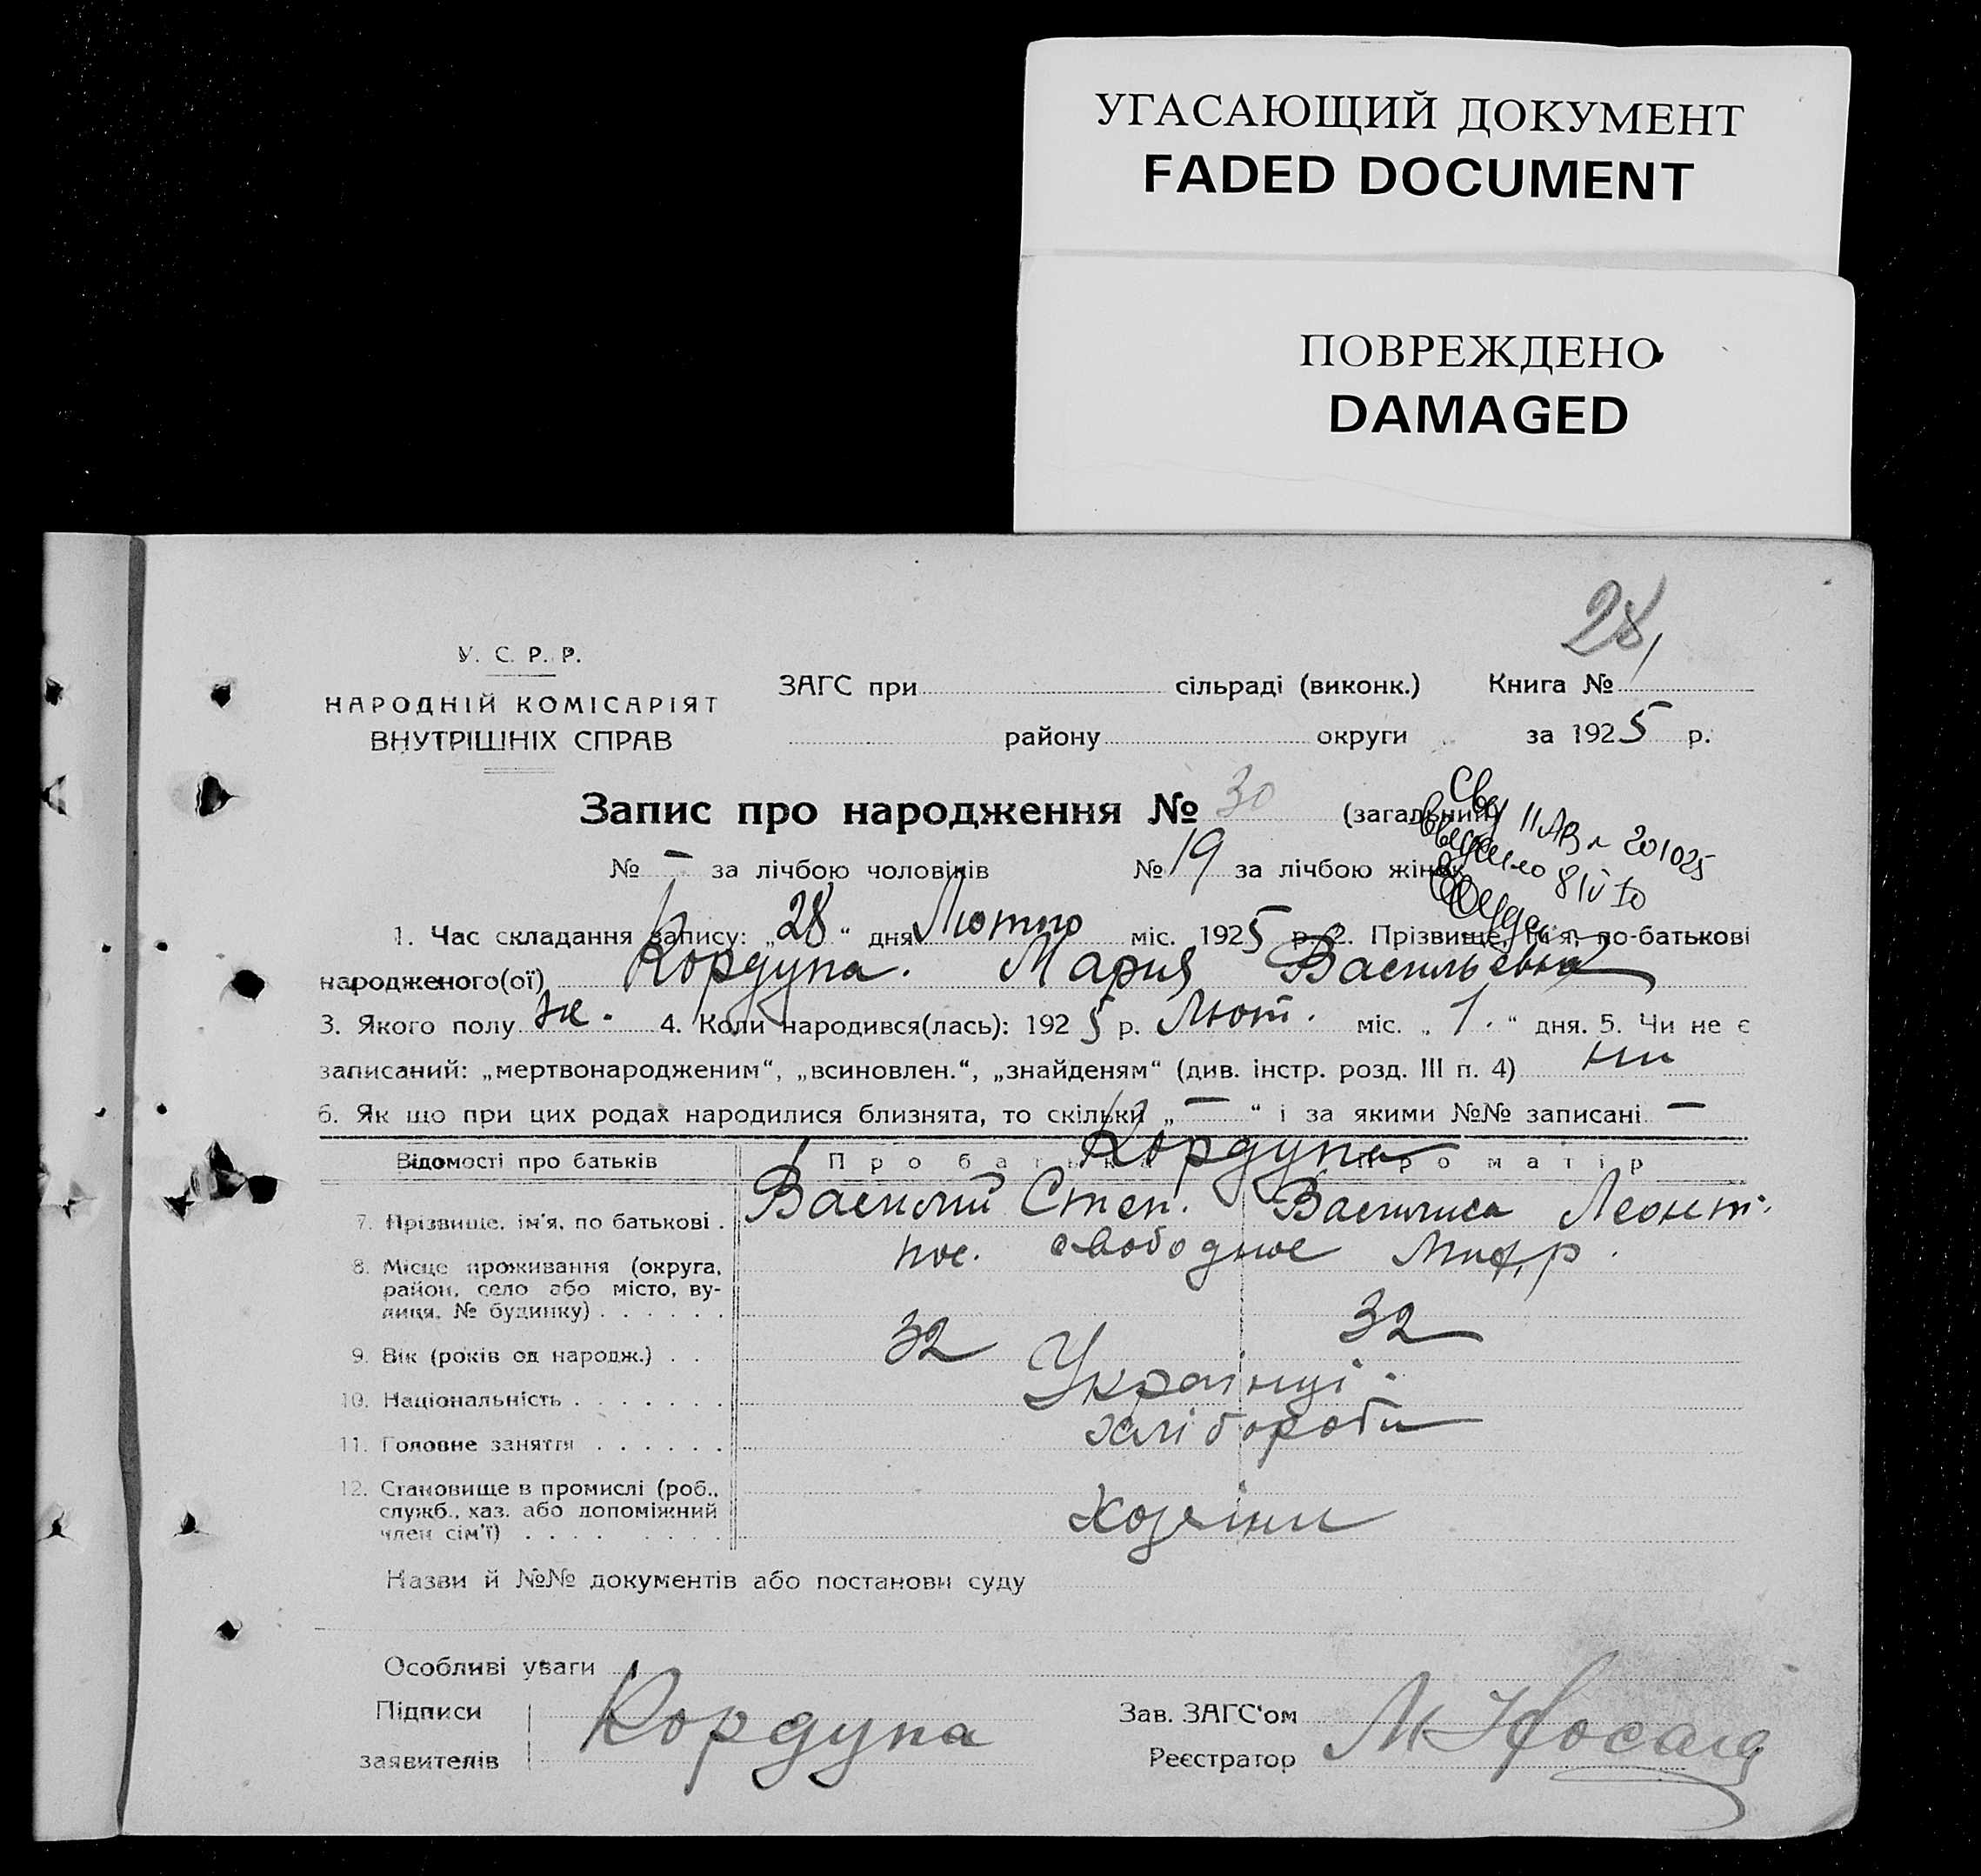 УГАСАЮЩИЙ ДОКУМЕНТ
FADED DOCUMENT
ПОВРЕЖДЕНО
DAMAGED
28
У. С. Р. Р.
НАРОДНІЙ КОМІСАРІЯТ
ВНУТРІШНІХ СПРАВ
ЗАГС при сільраді (виконк.) Книга №
району округи за 1925 р.
Запис про народження № 30 (загальний)
№ – за лічбою чоловіків № 19 за лічбою жінок
Свид II АВ № 201025
выдано 8/V 50
1. Час складання запису: „28“ дня Лютого міс. 1925 р. 2. Прізвище, ім'я, по-батькові
народженого(ої) Кордупа. Мария Васильевна
3. Якого полу ж. 4. Коли народився(лась): 1925 р. Лют. міс. „1.“ дня. 5. Чи не є
записаний: „мертвонародженим“, „всиновлен.“, „знайденям“ (див. інстр. розд. III п. 4) ни
6. Як що при цих родах народилися близнята, то скільки „—“ і за якими №№ записані —
Відомості про батьків Про батька Про матір
Кордупа
7. Прізвище, ім'я, по батькові . Василий Степ. Василиса Леонт.
8. Місце проживання (округа, район, село або місто, вулиця, № будинку) . . . . . . пос. свободное
9. Вік (років од народж.) . . 32 32
10. Національність . . . . . . . Українці.
11. Головне заняття . . . . . . хлібороби
12. Становище в промислі (роб., служб., хаз. або допоміжний член сім'ї) . . . . . . . . хозяіни
Назви й №№ документів або постанови суду
Особливі уваги
Підписи
заявителів
Кордупа
Зав. ЗАГС'ом
Реєстратор